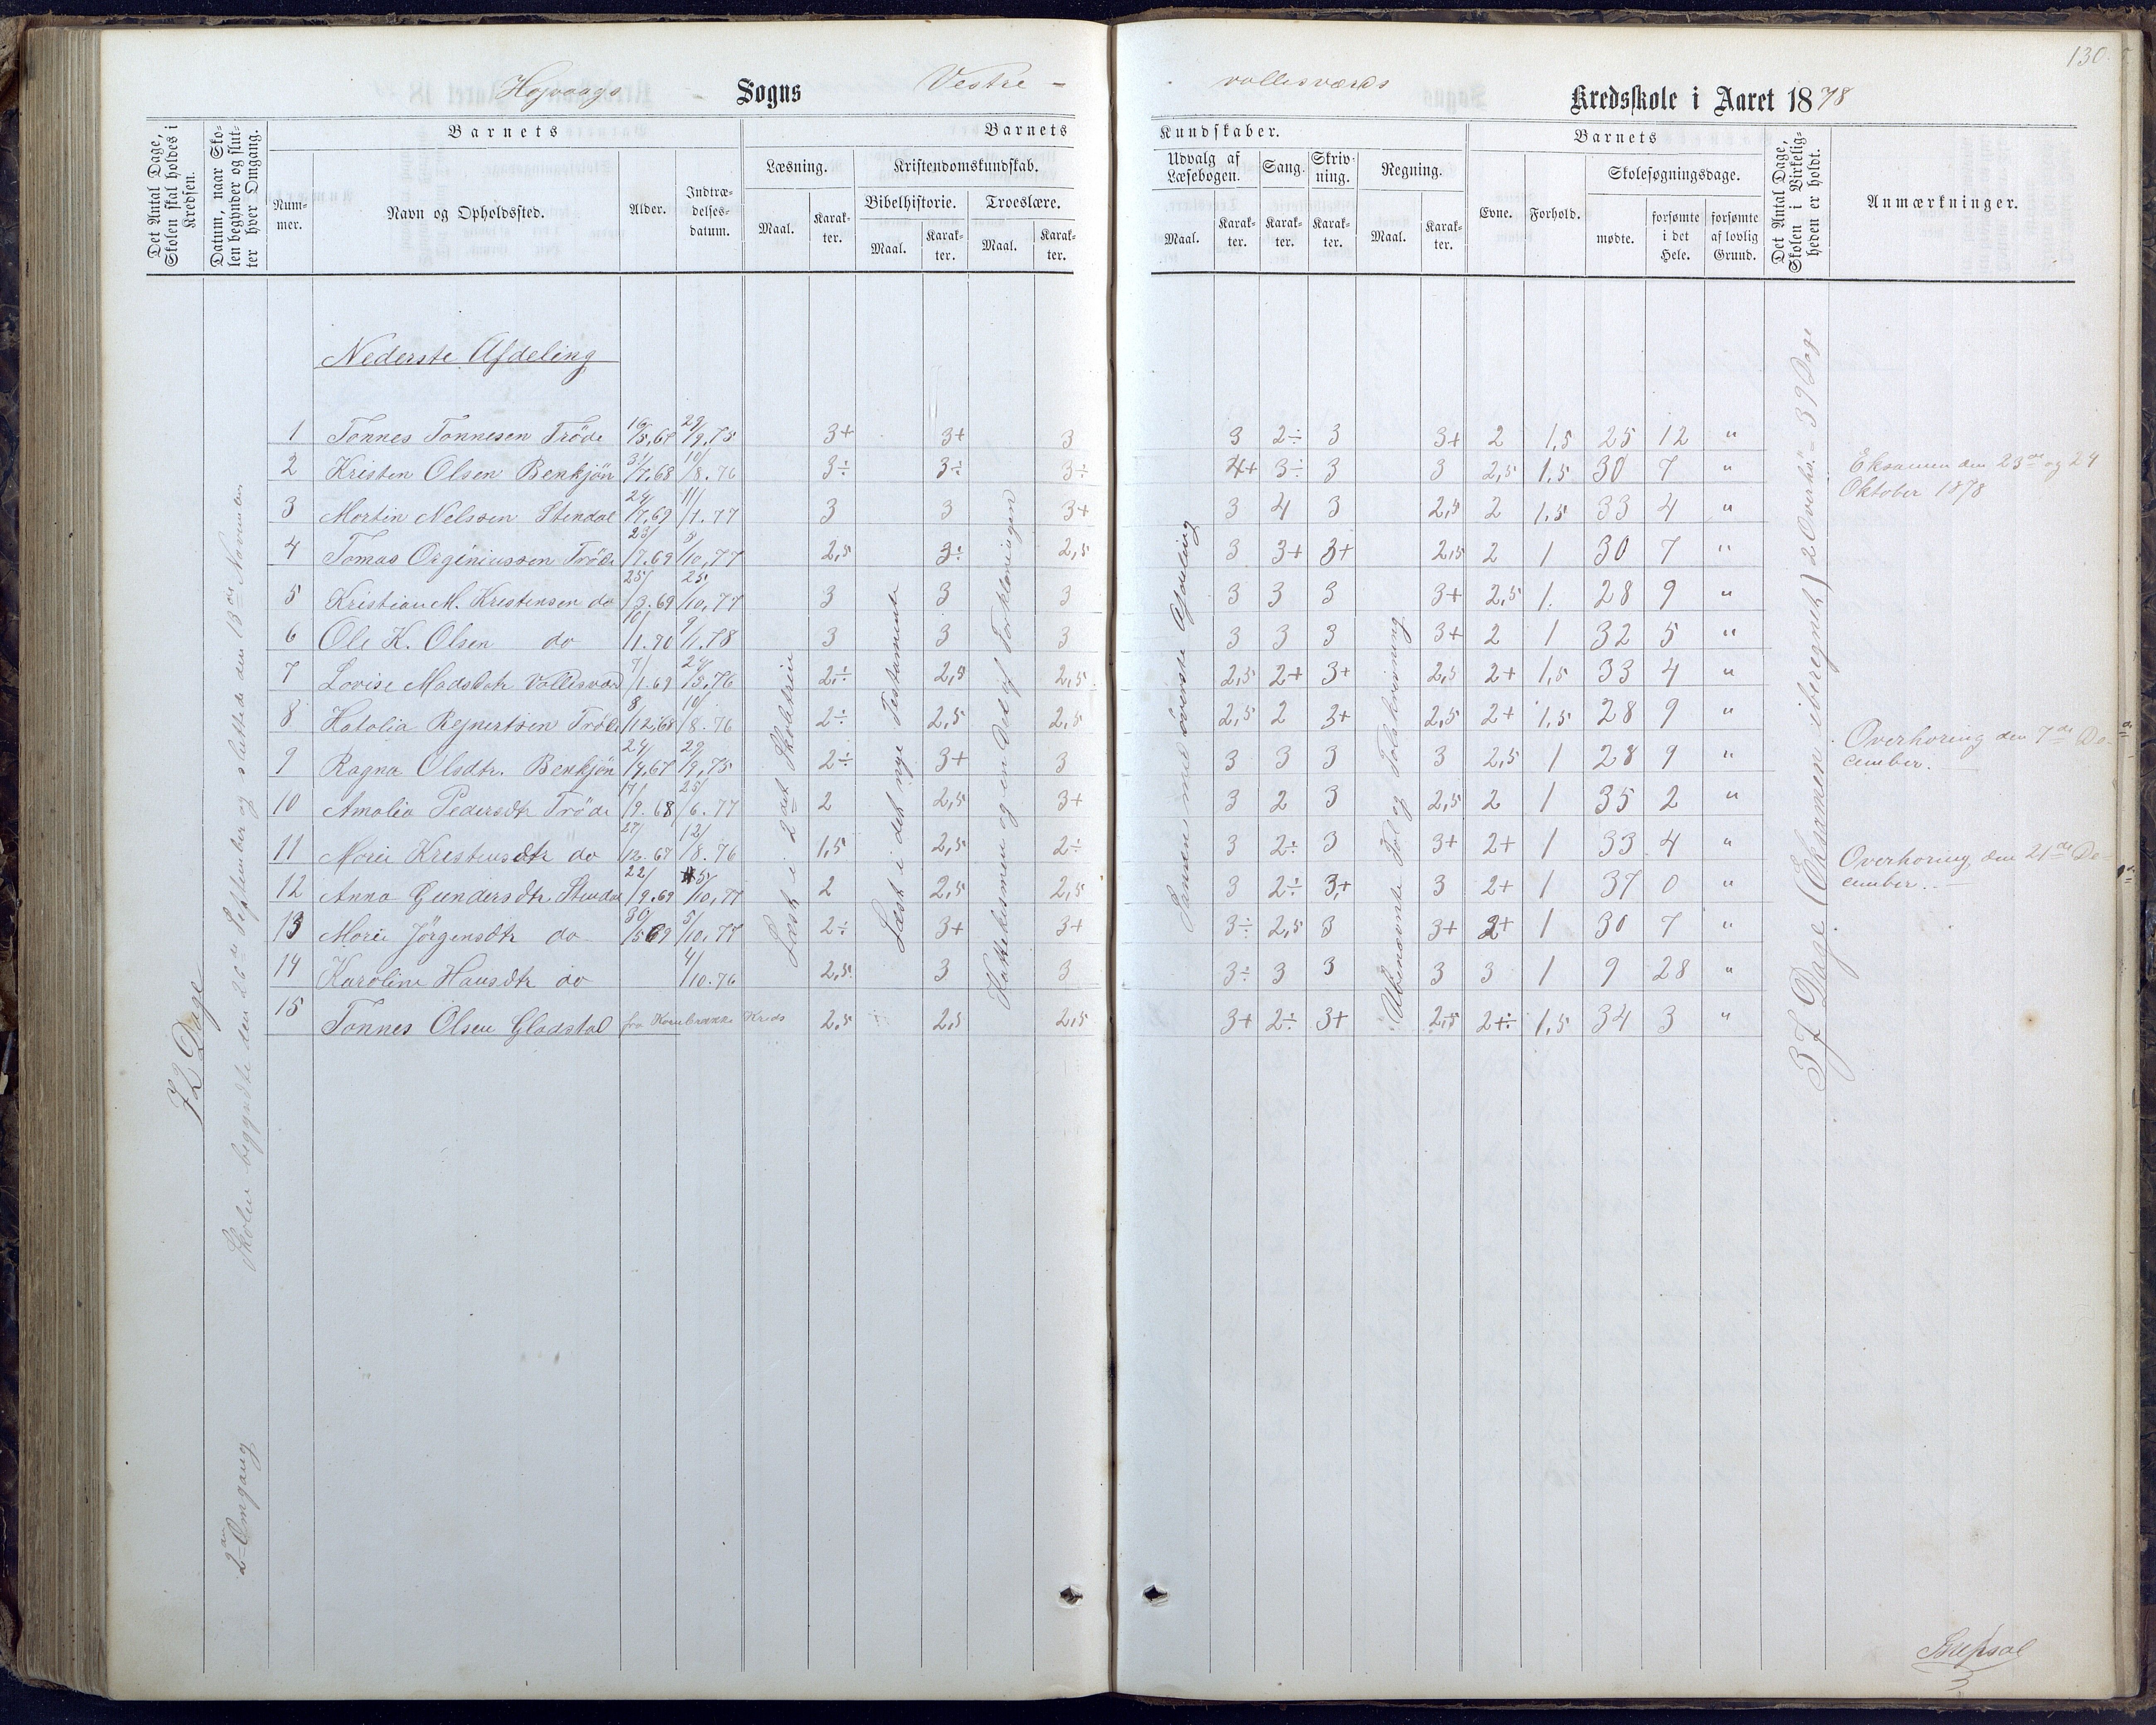 130.
Højvaags Sogns Vestre - vollesværds Kredsskole i Aaret 1878
Det Antal Dage, Skolen skal holdes i Kredsen.
Datum, naar Skolen begynder og slutter hver Omgang.
Barnets
Nummer.
Navn og Opholdssted.
Alder.
Indtrædelsesdatum.
Barnets Kundskaber.
Læsning.
Maal.
Karakter.
Kristendomskundskab.
Bibelhistorie.
Maal.
Karakter.
Troeslære.
Maal.
Karakter.
Udvalg af Læsebogen.
Maal.
Karakter.
Sang.
Karakter.
Skrivning.
Karakter.
Regning.
Maal.
Karakter.
Barnets
Evne.
Forhold.
Skolesøgningsdage.
mødte.
forsømte i det Hele.
forsømte af lovlig Grund.
Det Antal Dage, Skolen i Virkeligheden er holdt.
Anmærkninger.
72 Dage
Skolen begyndte den 26de September og sluttede den 13de November
2den Omgang
Nederste Afdeling
1 Tønnes Tønnesen Tröde 16/5,67 29/9,75 3+ 3+ 3 3 2÷ 3 3+ 2 1,5 25 12 "
2 Kristen Olsen Benkjön 31/7,68 10/8.76 3÷ 3÷ 3÷ 4+ 3÷ 3 3 2,5 1,5 30 7 "
3 Martin Nelssen Stendal 24/7,69 11/1.77 3 3 3+ 3 4 3 2,5 2 1,5 33 4 "
4 Tomas Orgeniussen Tröde 23/7.69 5/10,77 2,5 3÷ 2,5 3 3+ 3+ 2,5 2 1 30 7 "
5 Kristian M. Kristensen do 25/3.69 25/10,77 3 3 3 3 3 3 3+ 2,5 1. 28 9 "
6 Ole K. Olsen do 10/1.70 9/1.78 3 3 3 3 3 3 3+ 2 1 32 5 "
7 Lovise Madsdtr Vollesværd 7/1.69 24/5,76 2÷ 2,5 2,5 2,5 2+ 3+ 2,5 2+ 1,5 33 4 "
8 Hatalia Rejnertsen Tröde 8/12,68 10/8.76 2÷ 2,5 2,5 2,5 2 3+ 2,5 2+ 1,5 28 9 "
9 Ragna Olsdtr. Benkjön 24/4,67 29/9,75 2÷ 3+ 3 3 3 3 3 2,5 1 28 9 "
10 Amalia Pedersdtr Tröde 17/9.68 25/6.77 2 2,5 3+ 3 2 3 2,5 2 1 35 2 "
11 Marie Kristensdtr do 27/12.67 12/8.76 1,5 2,5 2÷ 3 2÷ 3 3+ 2+ 1 33 4 "
12 Anna Gundersdtr Stendal 22/9.69 5/10,77 2 2,5 2,5 3 2÷ 3+ 3 2+ 1 37 0 "
13 Marie Jörgensdtr do 30/5 69 5/10.77 2÷ 3+ 3+ 3÷ 2,5 3 3+ 2+ 1 30 7 "
14 Karoline Hansdtr do 4/10.76 2,5 3 3 3÷ 3 3 3 3 1 9 28 "
15 Tønnes Olsen Gladstal fra Kreds 2,5 2,5 2,5 3+ 2÷ 3+ 2,5 2+÷ 1,5 34 3 "
Læst i 2det Skoletrin
Læst i det nye Testamente
Kattekismen og en Del af Forklaringen
Sammen med överste Afdeling
Ubenævnte Tal og Talskrivning
37 Dage (Eksamen iberegnet) 2 Overhö. = 39 Dage
Eksamen den 23de og 24
Oktober 1878
Overhøring den 7de De-
cember.
Overhøring, den 21de De-
cember. -